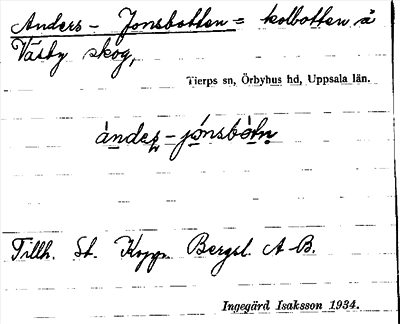 Anders-Jonsbotten = kolbotten å
Västy skog,
Tierps sn, Örbyhus hd, Uppsala län.
ànde̱ṣ-jónsbòtṇ
Tillh. St. Kopp. Bergsl. A-B.
Ingegärd Isaksson 1934.